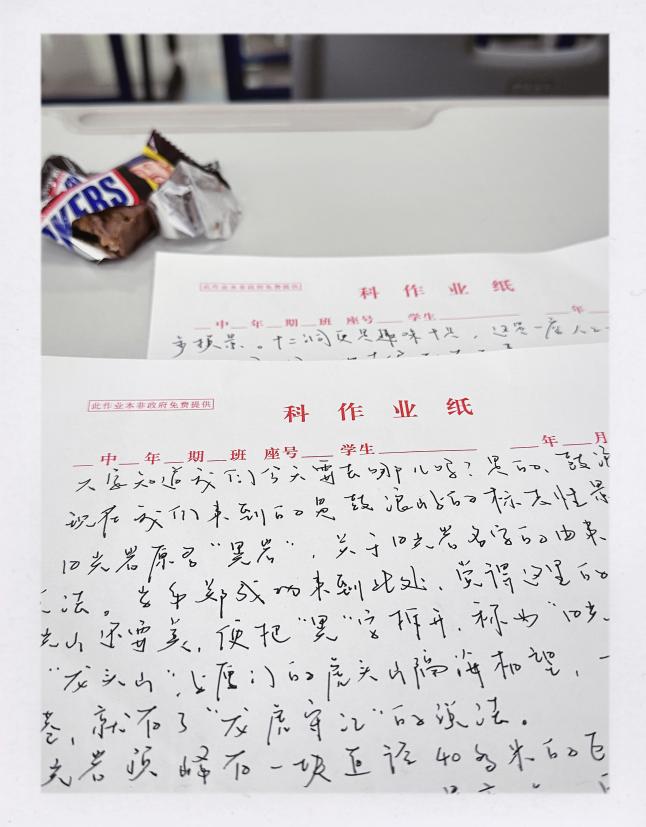 KERS
此作业本非政府免费提供
科 作 业 纸
中 年 期 班 座号 学生 年
多模景。十二洞更具趣味十足,这是一座人工
此作业本非政府免费提供
科 作 业 纸
中 年 期 班 座号 学生 年 月
大家知道我们今天要去哪儿吗?是的、鼓浪
现在我们来到的是鼓浪屿的标志性景
日光岩原名“晃岩”,关于日光岩名字的由来
说法。当年郑成功来到此处,觉得这里的
光山还要美,便把“晃”字拆开,称为“日光
“龙头山”与厦门的虎头山隔海相望,一
就有了“龙虎守江”的说法。
光岩顶峰有一块直径40多米的巨